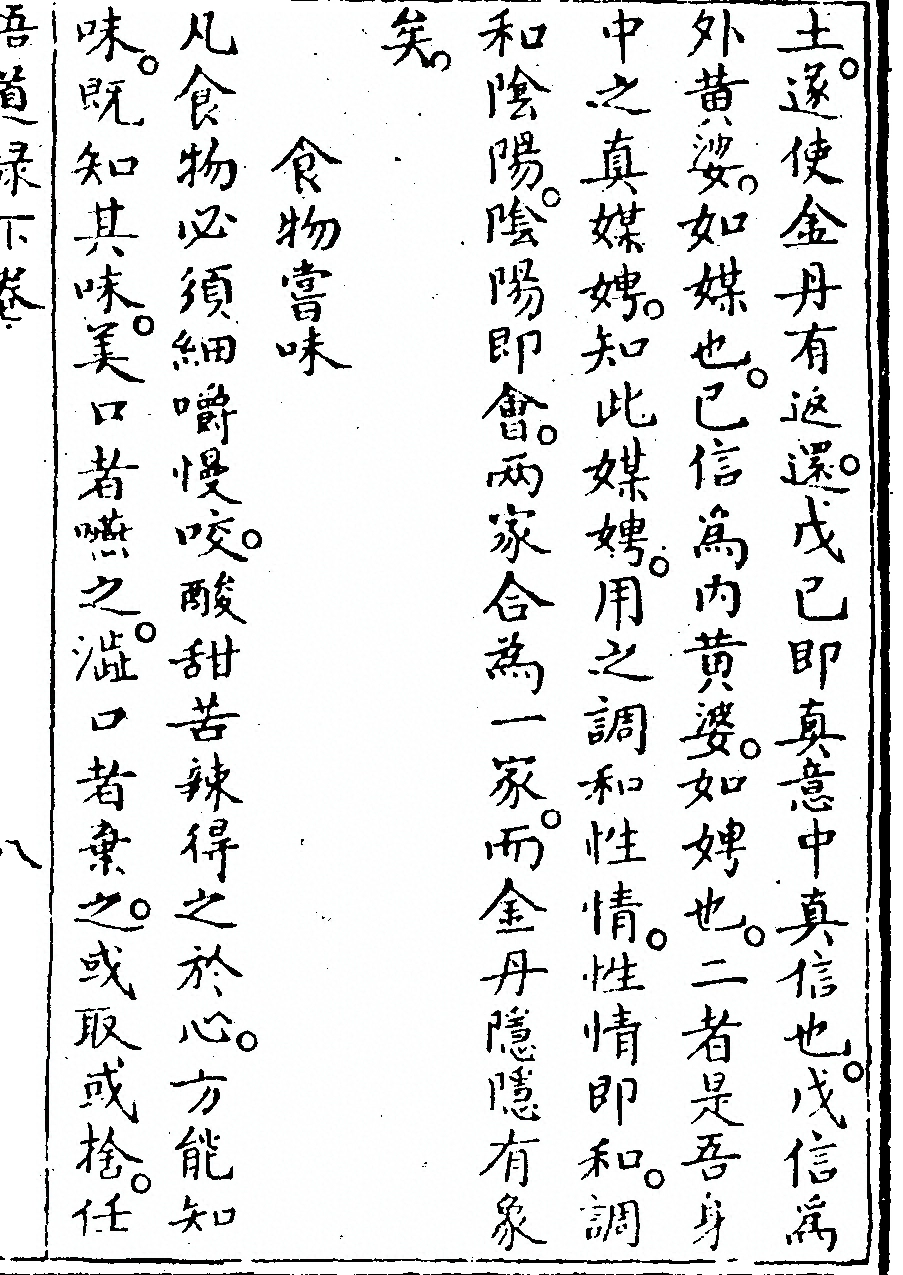 土。遂使金丹有返還。戊己即真意中真信也。戊信爲
外黄婆。如媒也。己信爲内黄婆。如娉也。二者是吾身
中之真媒娉。知此媒娉。用之調和性情。性情即和。調
和陰陽。陰陽即會。两家合為一家。而金丹隱隱有象
矣。
食物嘗味
凡食物必須細嚼慢咬。酸甜苦辣得之於心。方能知
味。既知其味。美口者嚥之。澁口者棄之。或取或捨。任
悟道録下卷
八